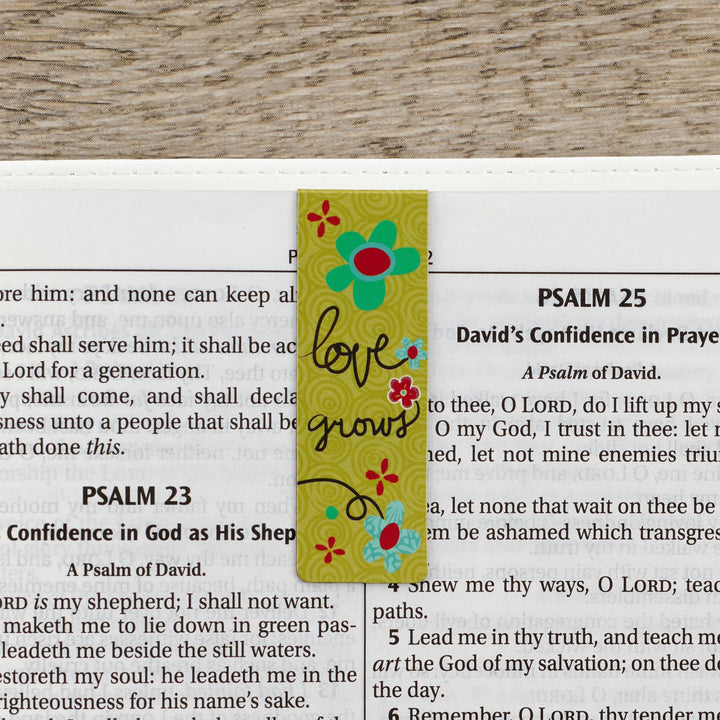 P
2
ore him: and none can keep al
eed shall serve him; it shall be ac
Lord for a generation.
y shall come, and shall decla
sness unto a people that shall be
hath done this.
PSALM 23
Confidence in God as His Shep
A Psalm of David.
ORD is my shepherd; I shall not want.
maketh me to lie down in green pas-
leadeth me beside the still waters.
estoreth my soul: he leadeth me in the
righteousness for his name's sake.
love
grows
PSALM 25
David's Confidence in Praye
A Psalm of David.
to thee, O LORD, do I lift up my s
O my God, I trust in thee: let
med, let not mine enemies triu
ea, let none that wait on thee be
em be ashamed which transgres
4 Shew me thy ways, O LORD, teac
paths.
5 Lead me in thy truth, and teach me
art the God of my salvation; on thee do
the day.
6 Remember, O LORD, thy tender